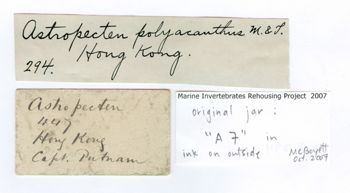 Astropecten polyacanthus M. & T.
Hong Kong.
294.
Astropecten
447
Hong Kong
Capt. Putnam
Marine Invertebrates Rehousing Project 2007
original jar:
"A 7" in
ink on outside
McBoyett
Oct. 2007